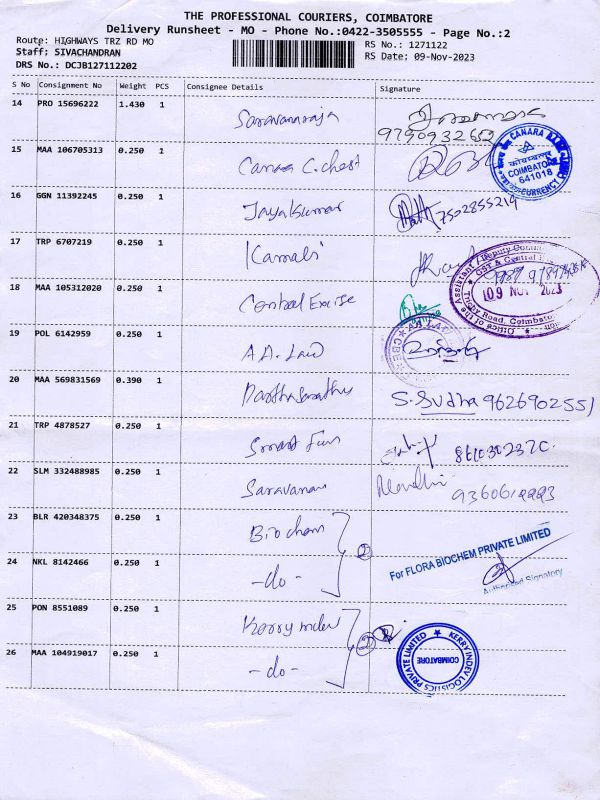 THE PROFESSIONAL COURIERS, COIMBATORE
Delivery Runsheet - MO - Phone No.:0422-3505555 - Page No.:2
Route: HIGHWAYS TRZ RD MO
RS No.: 1271122
Staff: SIVACHANDRAN
RS Date: 09-Nov-2023
DRS No.: DCJB127112202
S No Consignment No Weight PCS Consignee Details Signature
14 PRO 15696222 1.430 1 Saravanaraja
9790932652
15 MAA 106705313 0.250 1 Canara C.chest
CANARA BANK
COIMBATORE
641018
CURRENCY
16 GGN 11392245 0.250 1 Jayakumar 7502855219
17 TRP 6707219 0.250 1 Kamali
Assistant / Deputy
GST & Central
09 NOV 2023
Road, Coimbatore
Office of the
18 MAA 105312020 0.250 1 Central Excise
19 POL 6142959 0.250 1 A.A. Law
20 MAA 569831569 0.390 1 Parthasarathy S. Sudha 9626902551
21 TRP 4878527 0.250 1 Smart Fun
22 SLM 332488985 0.250 1 Saravanan
23 BLR 420348375 0.250 1 Biochem
2
For FLORA BIOCHEM PRIVATE LIMITED
Authorised Signatory
24 NKL 8142466 0.250 1 -do-
25 PON 8551089 0.250 1 Kerry indev
2
KERRY INDEV LOGISTICS PRIVATE LIMITED
COIMBATORE
26 MAA 104919017 0.250 1 -do-